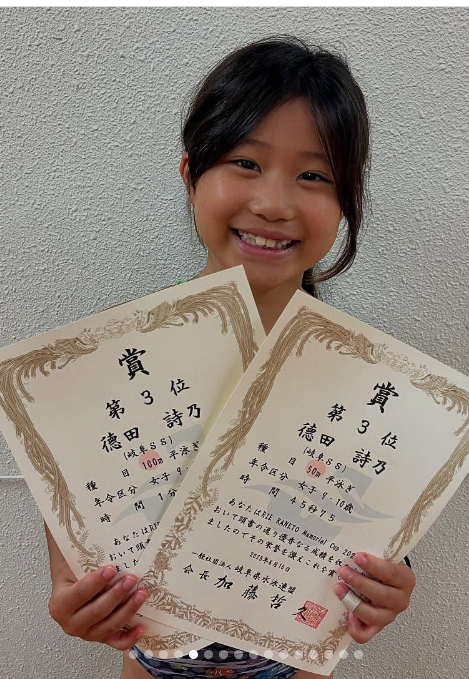 賞
第3位
徳田 詩乃
(岐阜SS)
種 目 100m 平泳ぎ
年令区分 女子 9
時 間 1分
あなたはRIE
おいて頭書
ましたので
賞
第3位
徳田 詩乃
(岐阜SS)
種 目 50m 平泳ぎ
年令区分 女子 9-10歳
時 間 45秒75
あなたはRIE KANETO Memorial Cup 20
おいて頭書の通り優秀なる成績を収
ましたのでその栄誉を讃えこれを賞
一般社団法人 岐阜県水泳連盟
会長 加藤 哲久